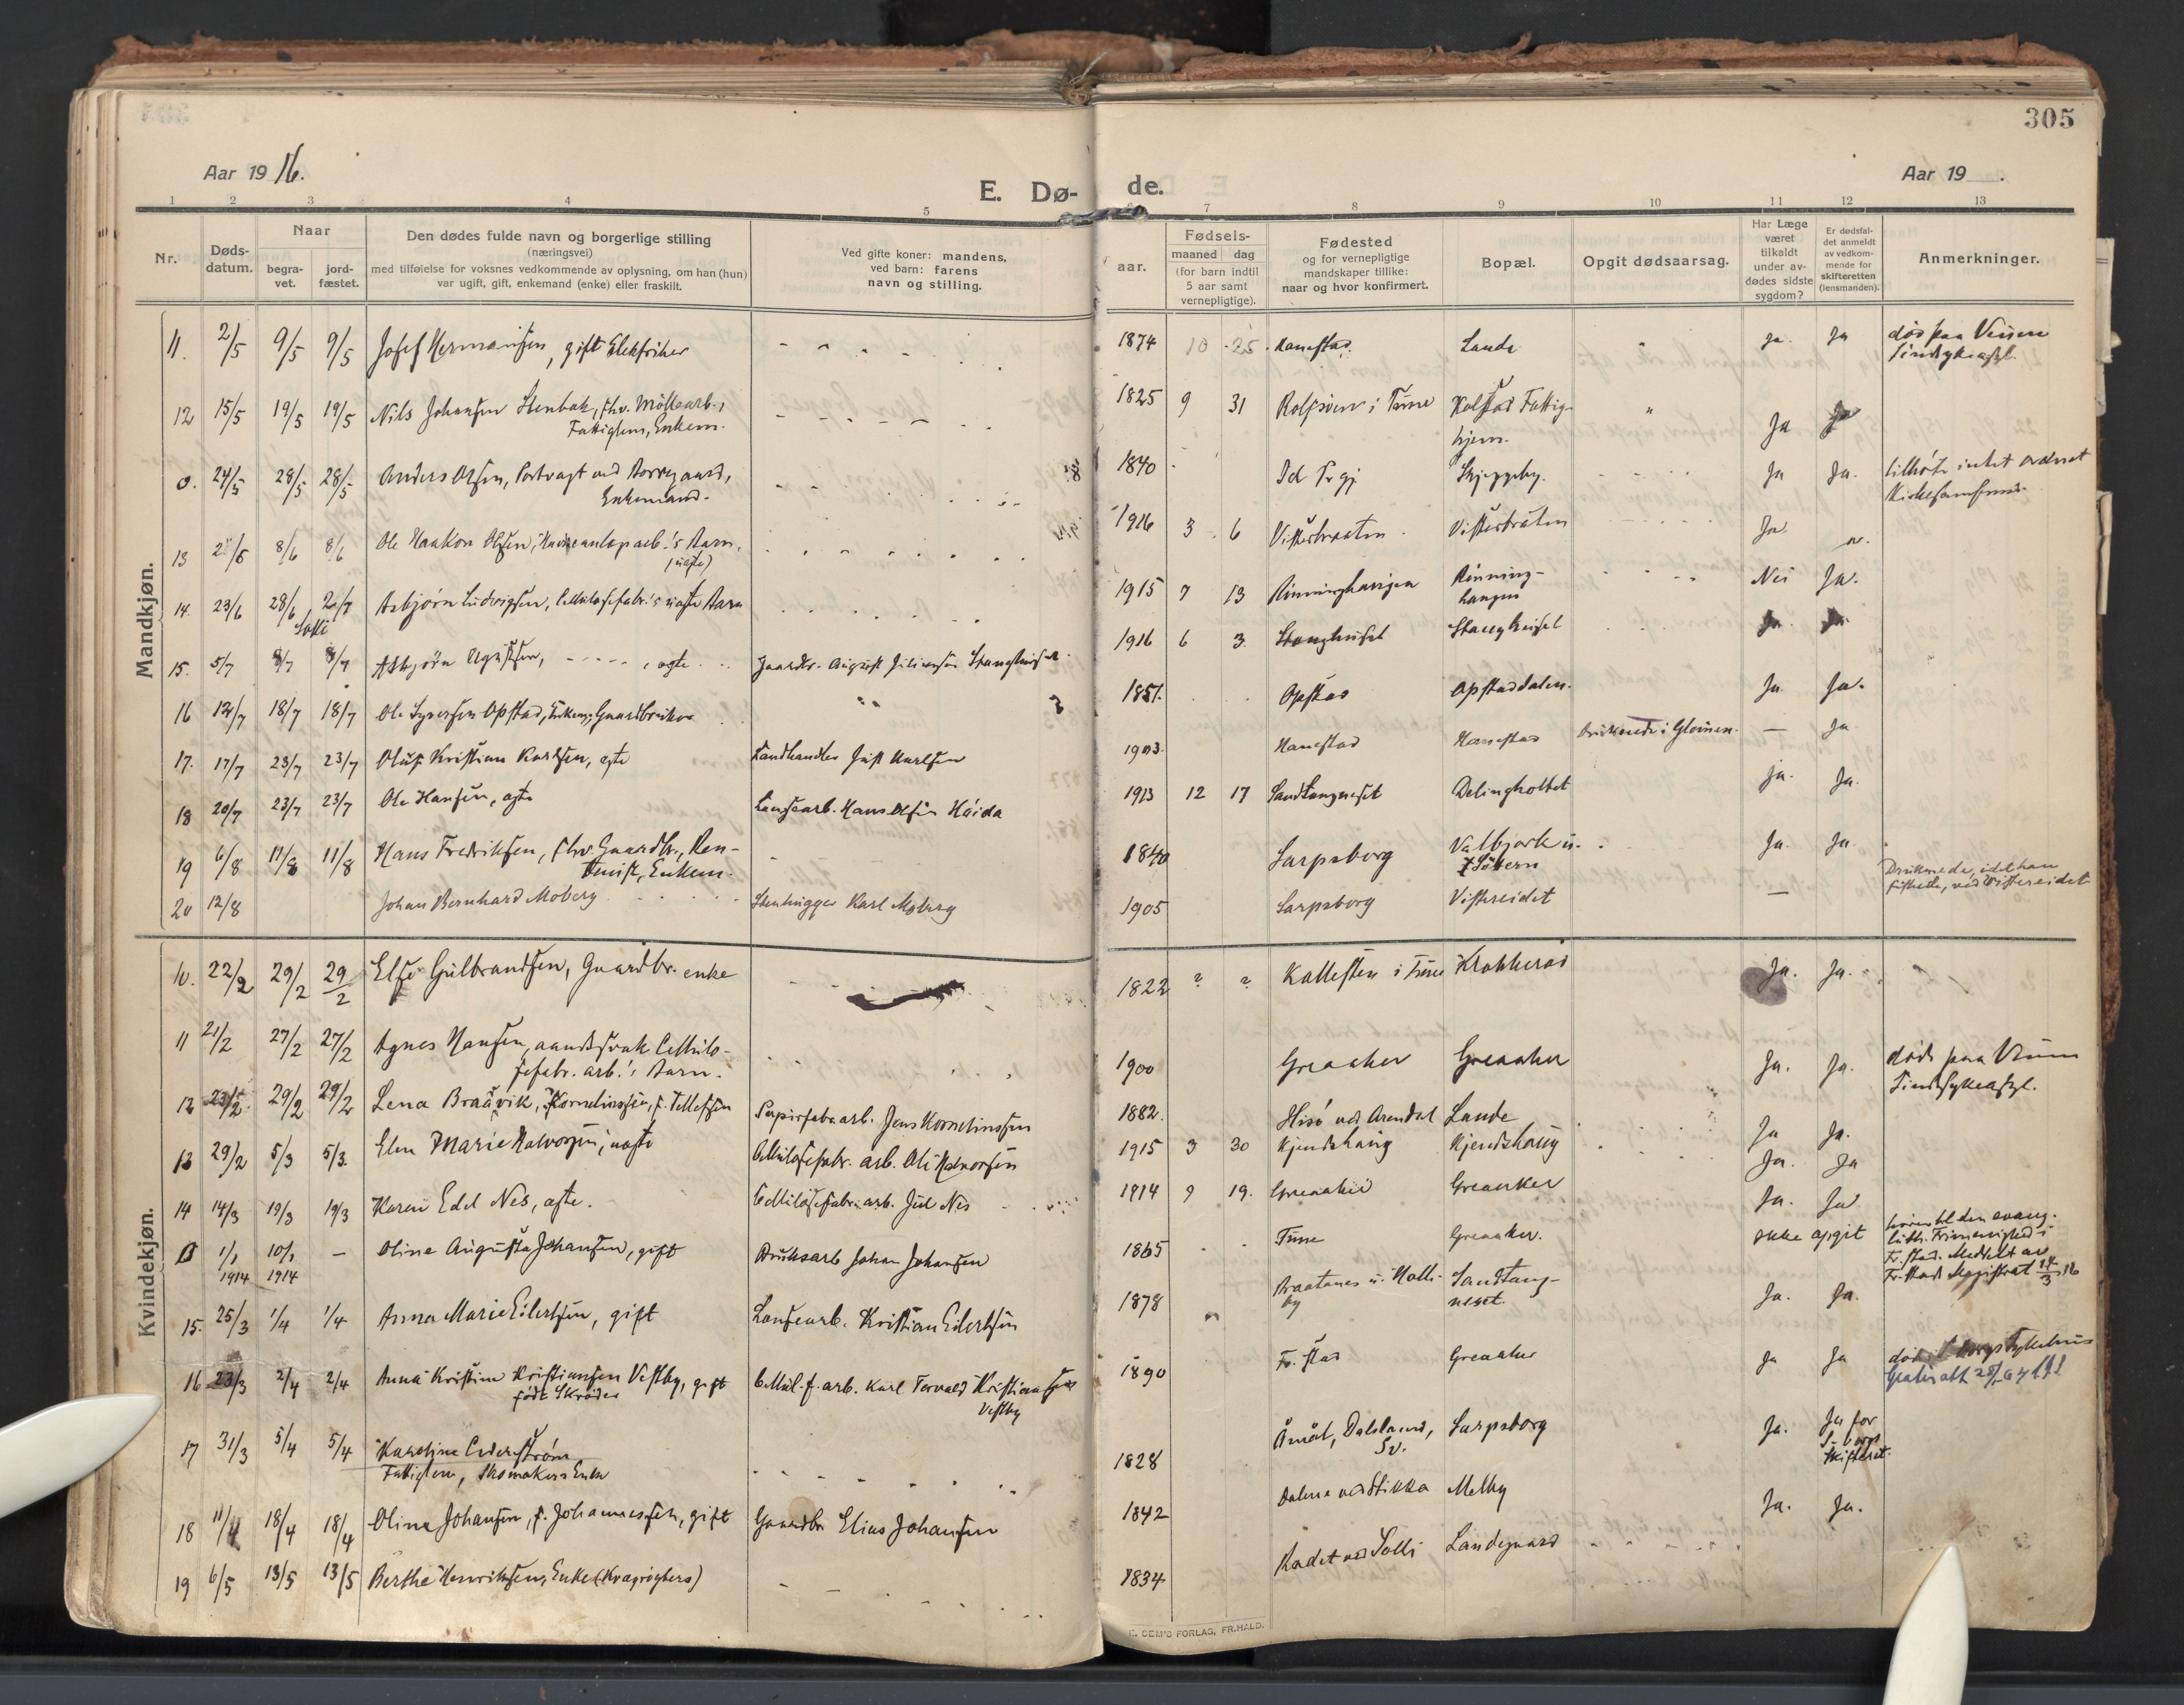 305
Aar 1916.
E. Dø-
de.
Aar 19 .
1 2 3 4 5
7 8 9 10 11 12 13
Nr.
Døds-
datum.
Naar
begra-
vet.
jord-
fæstet.
Den dødes fulde navn og borgerlige stilling
(næringsvei)
med tilføielse for voksnes vedkommende av oplysning, om han (hun)
var ugift, gift, enkemand (enke) eller fraskilt.
Ved gifte koner: mandens,
ved barn: farens
navn og stilling.
Fødsels-
aar.
maaned dag
(for barn indtil
5 aar samt
vernepligtige).
Fødested
og for vernepligtige
mandskaper tillike:
naar og hvor konfirmert.
Bopæl.
Opgit dødsaarsag.
Har Læge
været
tilkaldt
under av-
dødes sidste
sygdom?
Er dødsfal-
det anmeldt
av vedkom-
mende for
skifteretten
(lensmanden).
Anmerkninger.
Mandkjøn.
11. 2/5 9/5 9/5 Josef Hermansen, gift 1874 10 25 Hanestad Lande " ja. Ja død paa Veum
Sindsykeasyl.
12 15/5 19/5 19/5 Nils Johansen Stenbæk, fhv. Møllearb.,
Fattiglem, Enkem. 1825 9 31 Rolfsøen i Tune Kalstad Fattig-
hjem. " Ja Ja
0. 24/5 28/5 28/5 Anders Olsen, Portvagt ved Borregaard,
Enkemand. 1840 Id Prgj Skjeggeby. Ja Ja. tilhørte intet ordnet
Kirkesamfund.
13 8/6 8/6 Ole Haakon Olsen, Barn,
(uægte) 1916 3 6 Visterbraaten Visterbråten Ja.
14. 23/6 28/6 2/7 Asbjørn Ludvigsen, Cellulosefabr.'s uægte Barn 1915 7 13 Rønninghaugen Rønning-
haugen Nei Ja.
Solli
15. 5/7 8/7 8/7 Asbjørn Agustsen, , ægte Gaardbr. August Stanghuset 1916 6 3 Stanghuset Stanghuset Ja. Ja.
16 12/7 18/7 18/7 Ole Syversen Opstad, Enkem., Gaardbruker 1851. Opstad Opstaddalen. Ja Ja.
17. 17/7 23/7 23/7 Oluf Kristian Karlsen, ægte Landhandler Just Karlsen 1903. Hanestad Hanestad Druknede i Glommen. — Ja
18 20/7 23/7 23/7 Ole Hansen, ægte Lænsearb. Hans Olsen 1913 12 17 Sandtangneset ja. Ja.
19 6/8 11/8 11/8 Hans Fredriksen, fhv. Gaardbr., Ren-
tenist, Enkem. 1840 Sarpsborg Valbjørk u. Ja. Ja.
20 12/8 Johan Bernhard Moberg Stenhugger Karl Moberg 1905 Sarpsborg Vistereidet — Druknede, idet han
fiskede, ved Vistereidet
Kvindekjøn.
10. 22/2 29/2 29/2 Else Gulbrandsen, Gaardbr. enke 1822 ? ? Kallesten i Tune Krokkerød Ja. Ja.
11 21/2 27/2 27/2 Agnes Hansen, aandssvak Cellulo-
sefabr. arb.'s Barn. 1900 Greaaker Greaaker Ja. Ja. død paa Veum
Sindssykeasyl.
12 23/2 29/2 29/2 Lena Braavik, Kornelinssen, f. Tellefsen Papirfabr.arb. Jens Kornelinssen 1882. Hisø ved Arendal Lande Ja Ja.
13 29/2 5/3 5/3. Elen Marie Halvorsen, uægte Cellulosefabr. arb. Ole Halvorsen 1915 3 30 Kjendshaug Kjendshaug Ja. Ja
14 14/3 19/3 19/3 Karen Edel Nes, ægte. Cellulosefabr. arb. Jul Nes 1914 9 19. Greaaker Greaaker Ja. Ja
0 1/1 10/1 — Oline Augusta Johansen, gift Bruksarb Johan Johansen 1865 Tune Greaaker. ikke opgit hører til den evang.
luth. Frimenighed i
Fr.stad. Meddelt av
Fr.stads Magistrat 14/3 16
1914 1914
15. 25/3 1/4 1/4 Anna Marie Eilertsen, gift Lænsearb. Kristian Eilertsen 1878 Sandtang-
neset. Ja. Ja.
16 23/3 2/4 2/4 Anna Kristine Kristiansen Vestby, gift
født Skrøder Cellul.f.arb. Karl Torvald Kristiansen
Vestby 1890 Fr.stad Greaaker ja Ja
17 31/3 5/4 5/4 Karoline Cederstrøm
Fattiglem, Skomakers Enke 1828 Åmål, Dalsland,
Sv. Sarpsborg Ja. Ja for
S.borgs
Skifteret.
18 11/4 18/4 18/4 Oline Johansen, f. Johannessen, gift Gaardbr Elias Johansen 1842 Dalene ved Stikka Melby Ja. Ja.
19 6/5 13/5 13/5 Berthe Henriksen, Enke 1834 ved Solli Landegaard
E. SEM'S FORLAG, FR.HALD.